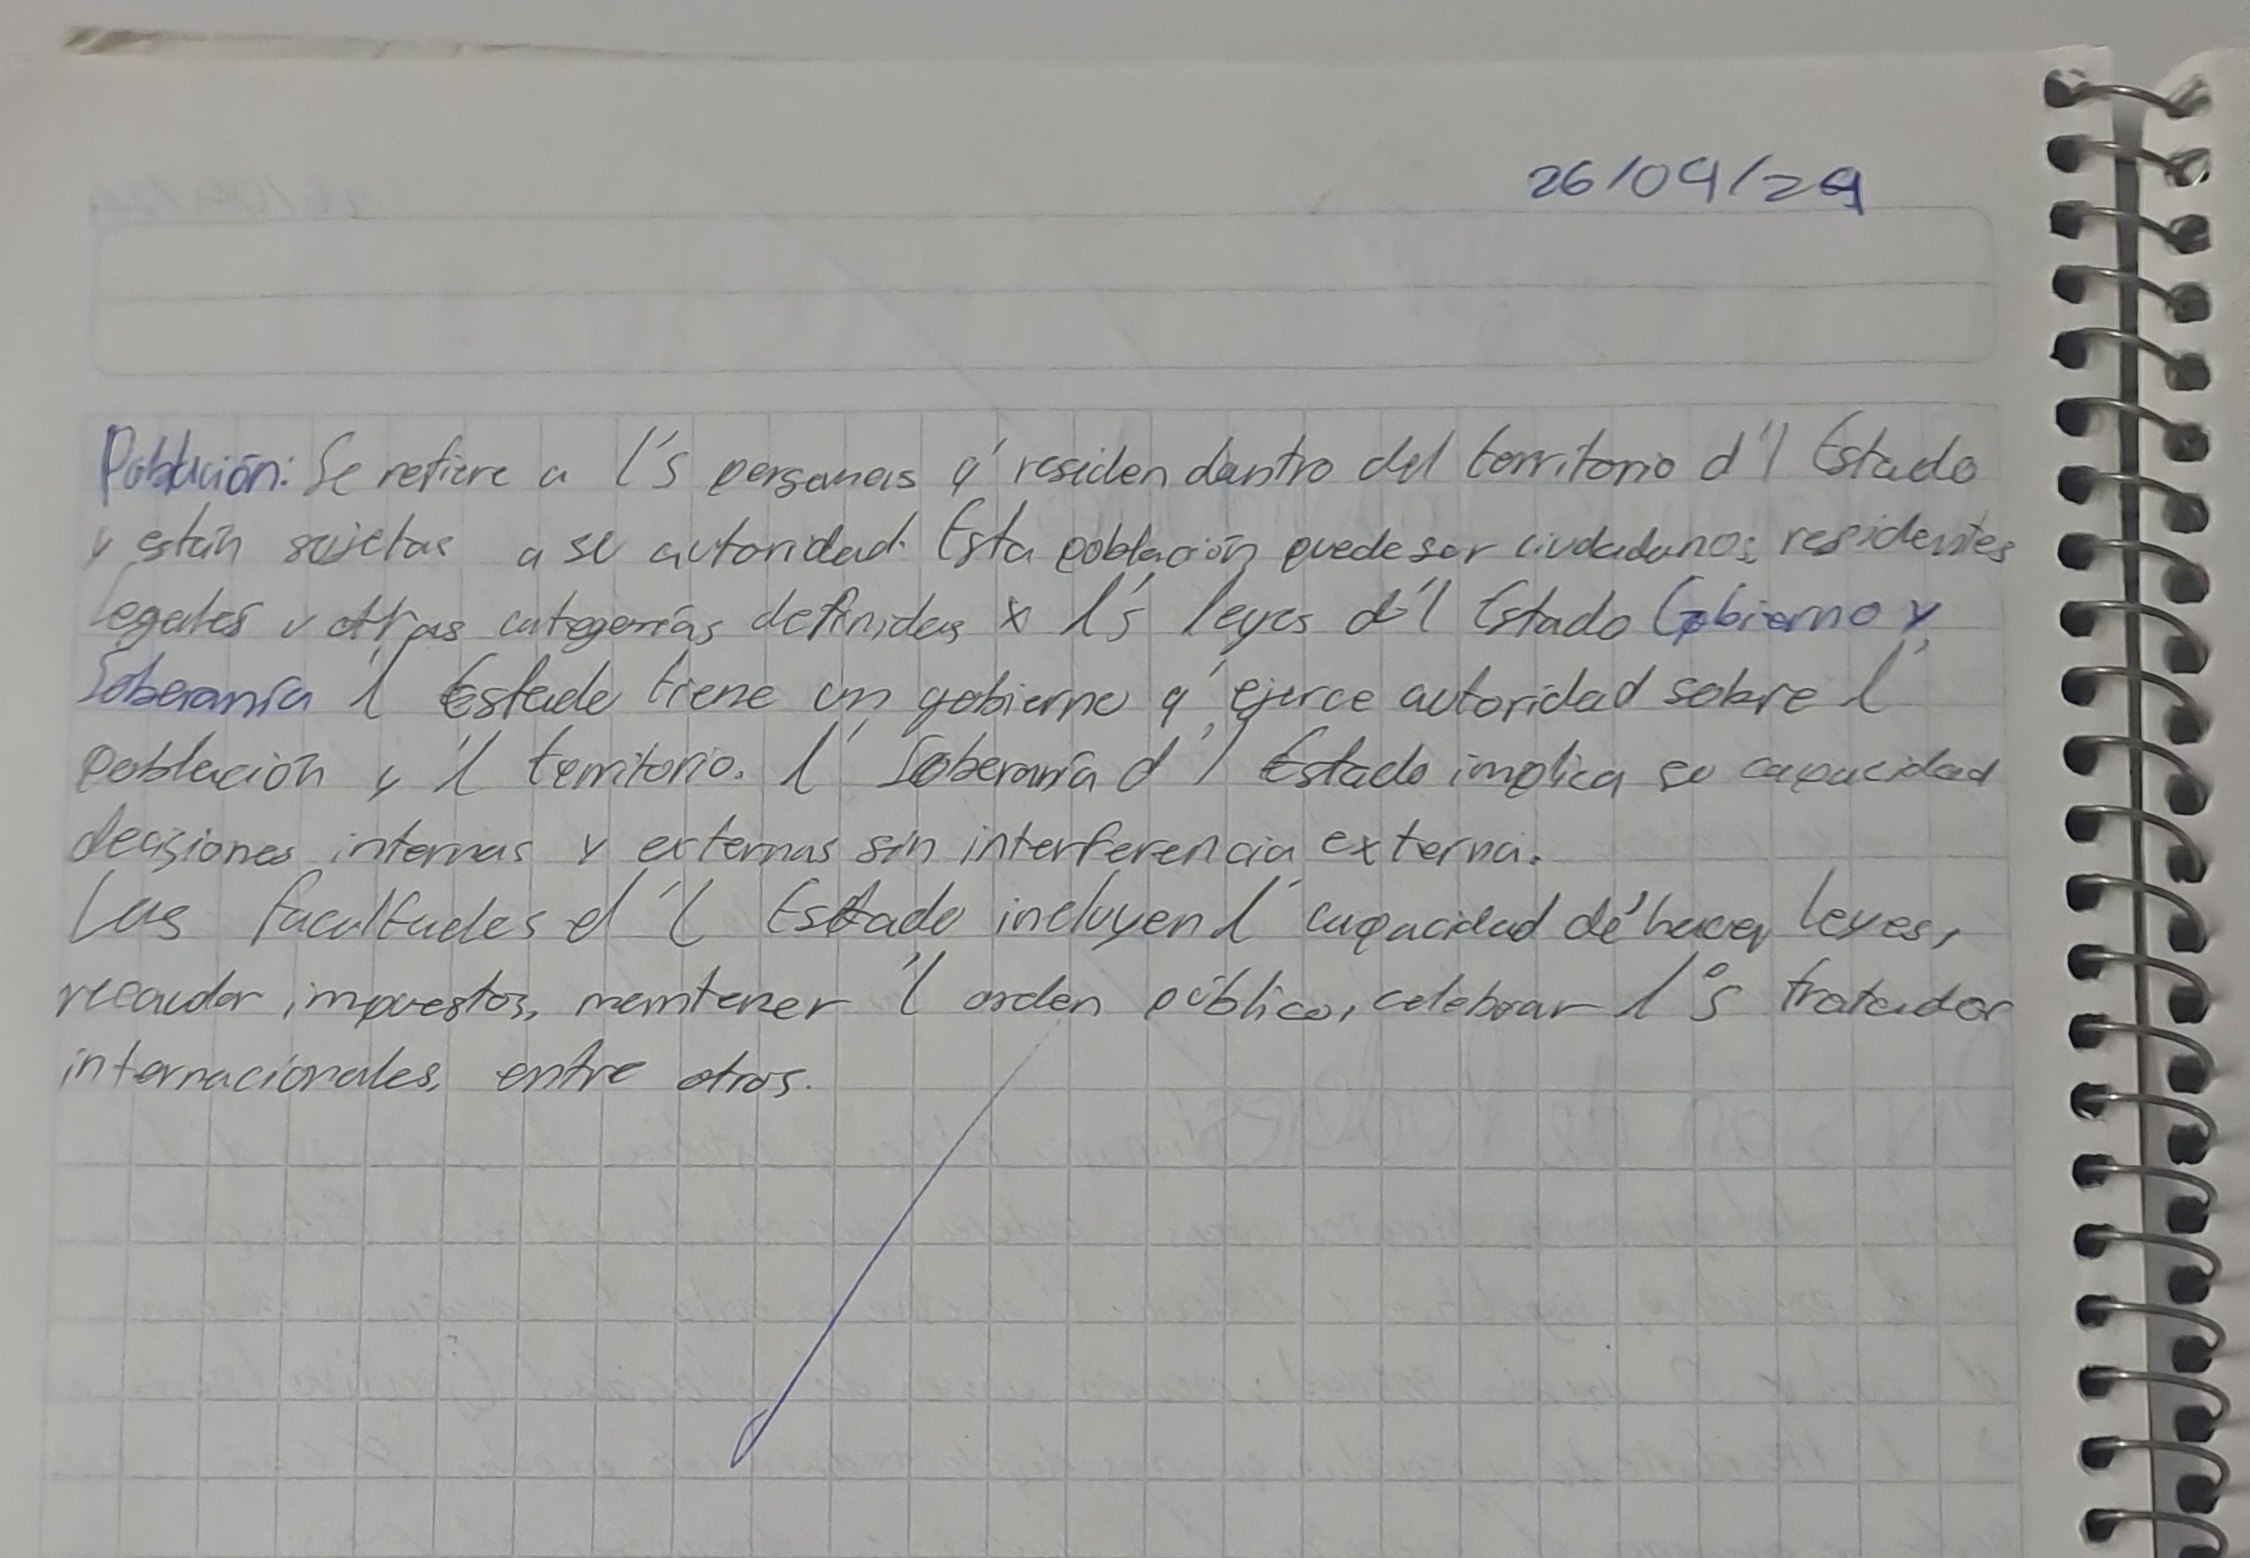 26/04/24
Población: Se refiere a l's personas q' residen dentro del territorio d'l Estado
y están sujetas a su autoridad. Esta población puede ser ciudadanos, residentes
legales y otras categorías definidas x l's leyes d'l Estado Gobierno y
Soberanía 'l Estado tiene un gobierno q' ejerce autoridad sobre l'
población y 'l territorio. l' Soberanía d'l Estado implica su capacidad
decisiones internas y externas sin interferencia externa.
Las facultades d'l Estado incluyen l' capacidad de hacer leyes,
recaudar impuestos, mantener 'l orden público, celebrar l°s tratados
internacionales, entre otros.